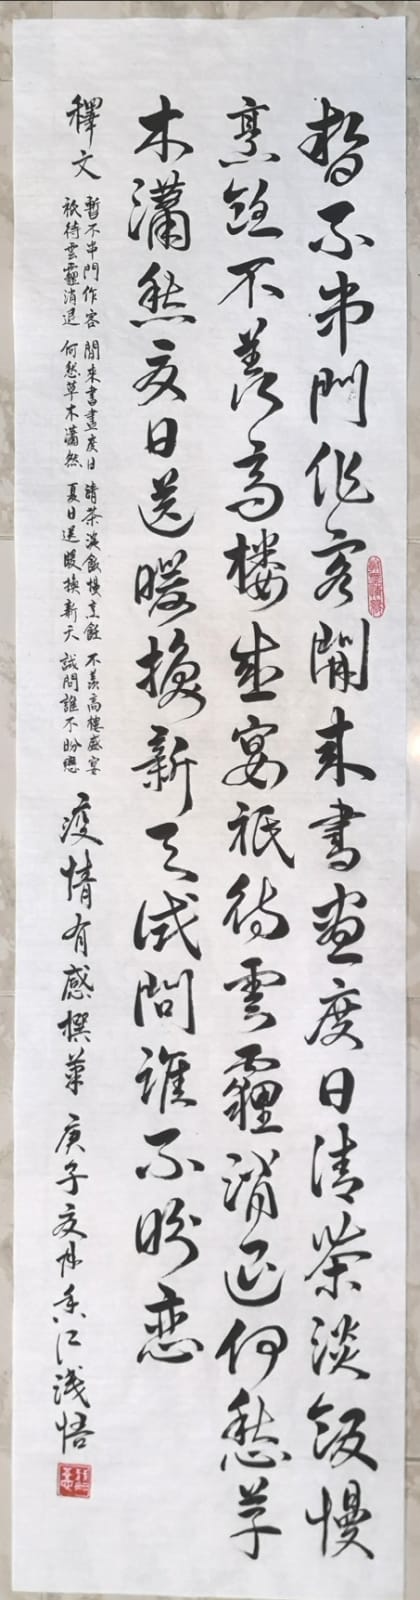 暫不串門作客閒來書畫度日清茶淡飯慢
烹飪不羨高樓盛宴祇待雲霾消退何愁草
木瀟然夏日送暖換新天試問誰不盼恋
釋文
暫不串門作客 閒來書畫度日 清茶淡飯慢烹飪 不羨高樓盛宴
祇待雲霾消退 何愁草木瀟然 夏日送暖換新天 試問誰不盼戀
疫情有感撰筆 庚子夏月香江淺悟